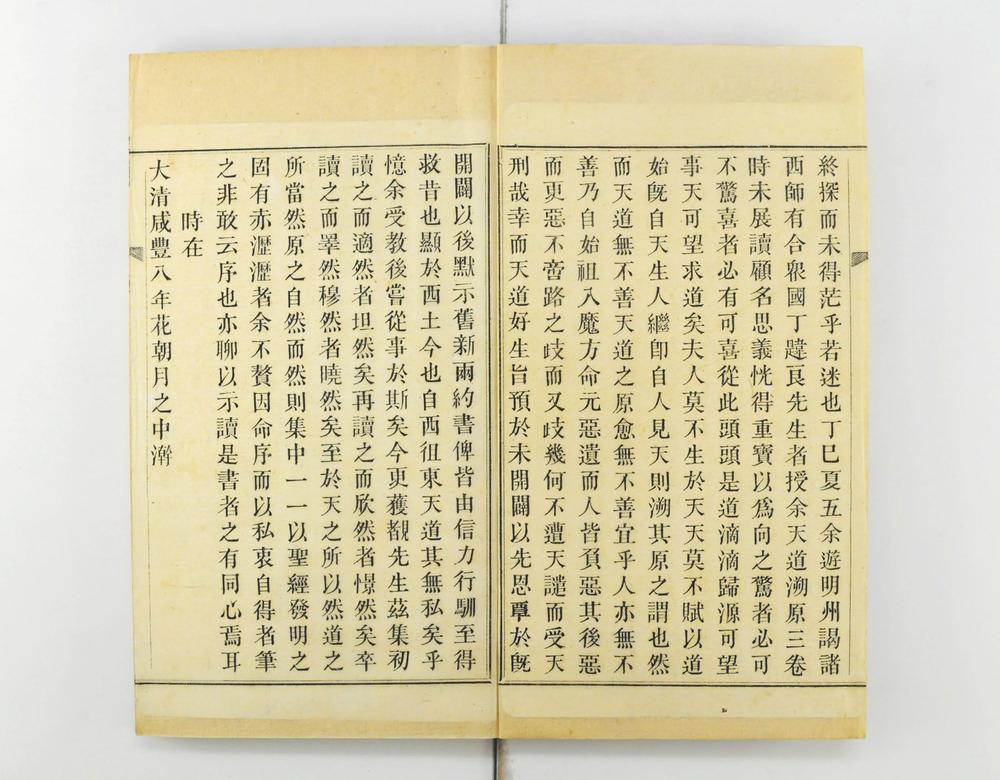 終探而未得茫乎若迷也丁巳夏五余遊明州謁諸
西師有合衆國丁韙良先生者授余天道溯原三卷
時未展讀顧名思義恍得重寶以爲向之驚者必可
不驚喜者必有可喜從此頭頭是道滴滴歸源可望
事天可望求道矣夫人莫不生於天天莫不賦以道
始旣自天生人繼卽自人見天則溯其原之謂也然
而天道無不善天道之原愈無不善宜乎人亦無不
善乃自始祖入魔方命元惡遺而人皆負惡其後惡
而更惡不啻路之歧而又歧幾何不遭天譴而受天
刑哉幸而天道好生旨預於未開闢以先恩覃於旣
開闢以後默示舊新兩約書俾皆由信力行馴至得
救昔也顯於西土今也自西徂東天道其無私矣乎
憶余受教後嘗從事於斯矣今更獲覩先生茲集初
讀之而適然者坦然矣再讀之而欣然者憬然矣卒
讀之而睪然穆然者曉然矣至於天之所以然道之
所當然原之自然而然則集中一一以聖經發明之
固有亦瀝瀝者余不贅因命序而以私衷自得者筆
之非敢云序也亦聊以示讀是書者之有同心焉耳
時在
大清咸豐八年花朝月之中澣